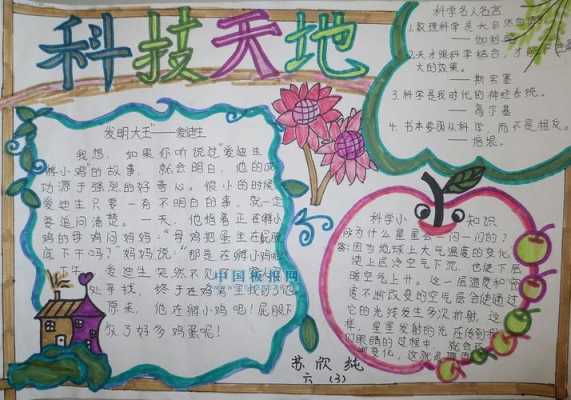 科技天地
发明大王"——爱迪生
我想,如果你听说过"爱迪生
孵小鸡"的故事,就会明白,他的成
功源于强烈的好奇心。很小的时候
爱迪生只要一有不明白的事,就一定
要追问清楚。一天,他指着正在孵小
鸡的母鸡问妈妈:"母鸡把蛋坐在屁股
底下干吗?"妈妈说:"那是在孵小鸡呢
爱迪生突然不见
处寻找,终于在鸡窝里找到了他
原来,他在孵小鸡吧!屁股下
放了好多鸡蛋呢!
中国板报网
科学名人名言
1.数理科学是大自然
——伽利略
2.天才跟科学结合,才能
大的效果。
——斯宾塞
3.科学是我时代的神经系统。
——高尔基
4.书本要跟从科学,而不是相反。
——培根。
科学小知识
为什么星星会一闪一闪的?
答:因为地球上大气温度的变化
使上层冷空气下沉,也使下层
暖空气上升。这一层温度和密
度不断改变的空气层会使通过
它的光线发生多次折射,这
样,星星发射的光在传到
们眼睛的过程中,就会
变化,这就
苏欣纯
六(3)